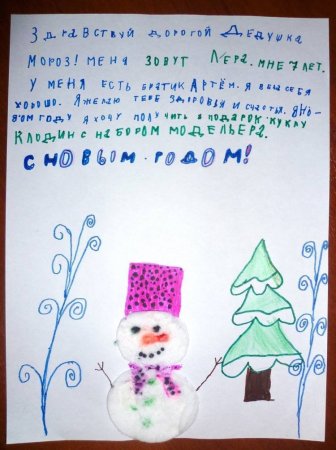 Здравствуй дорогой Дедушка
Мороз! меня зовут Лера. мне 7 лет.
У меня есть братик Артём. Я вела себя
хорошо. Я желаю тебе здоровья и счастья. В но-
вом году я хочу получить в подарок куклу
Клодин с набором модельера.
С НОВЫМ ГОДОМ!